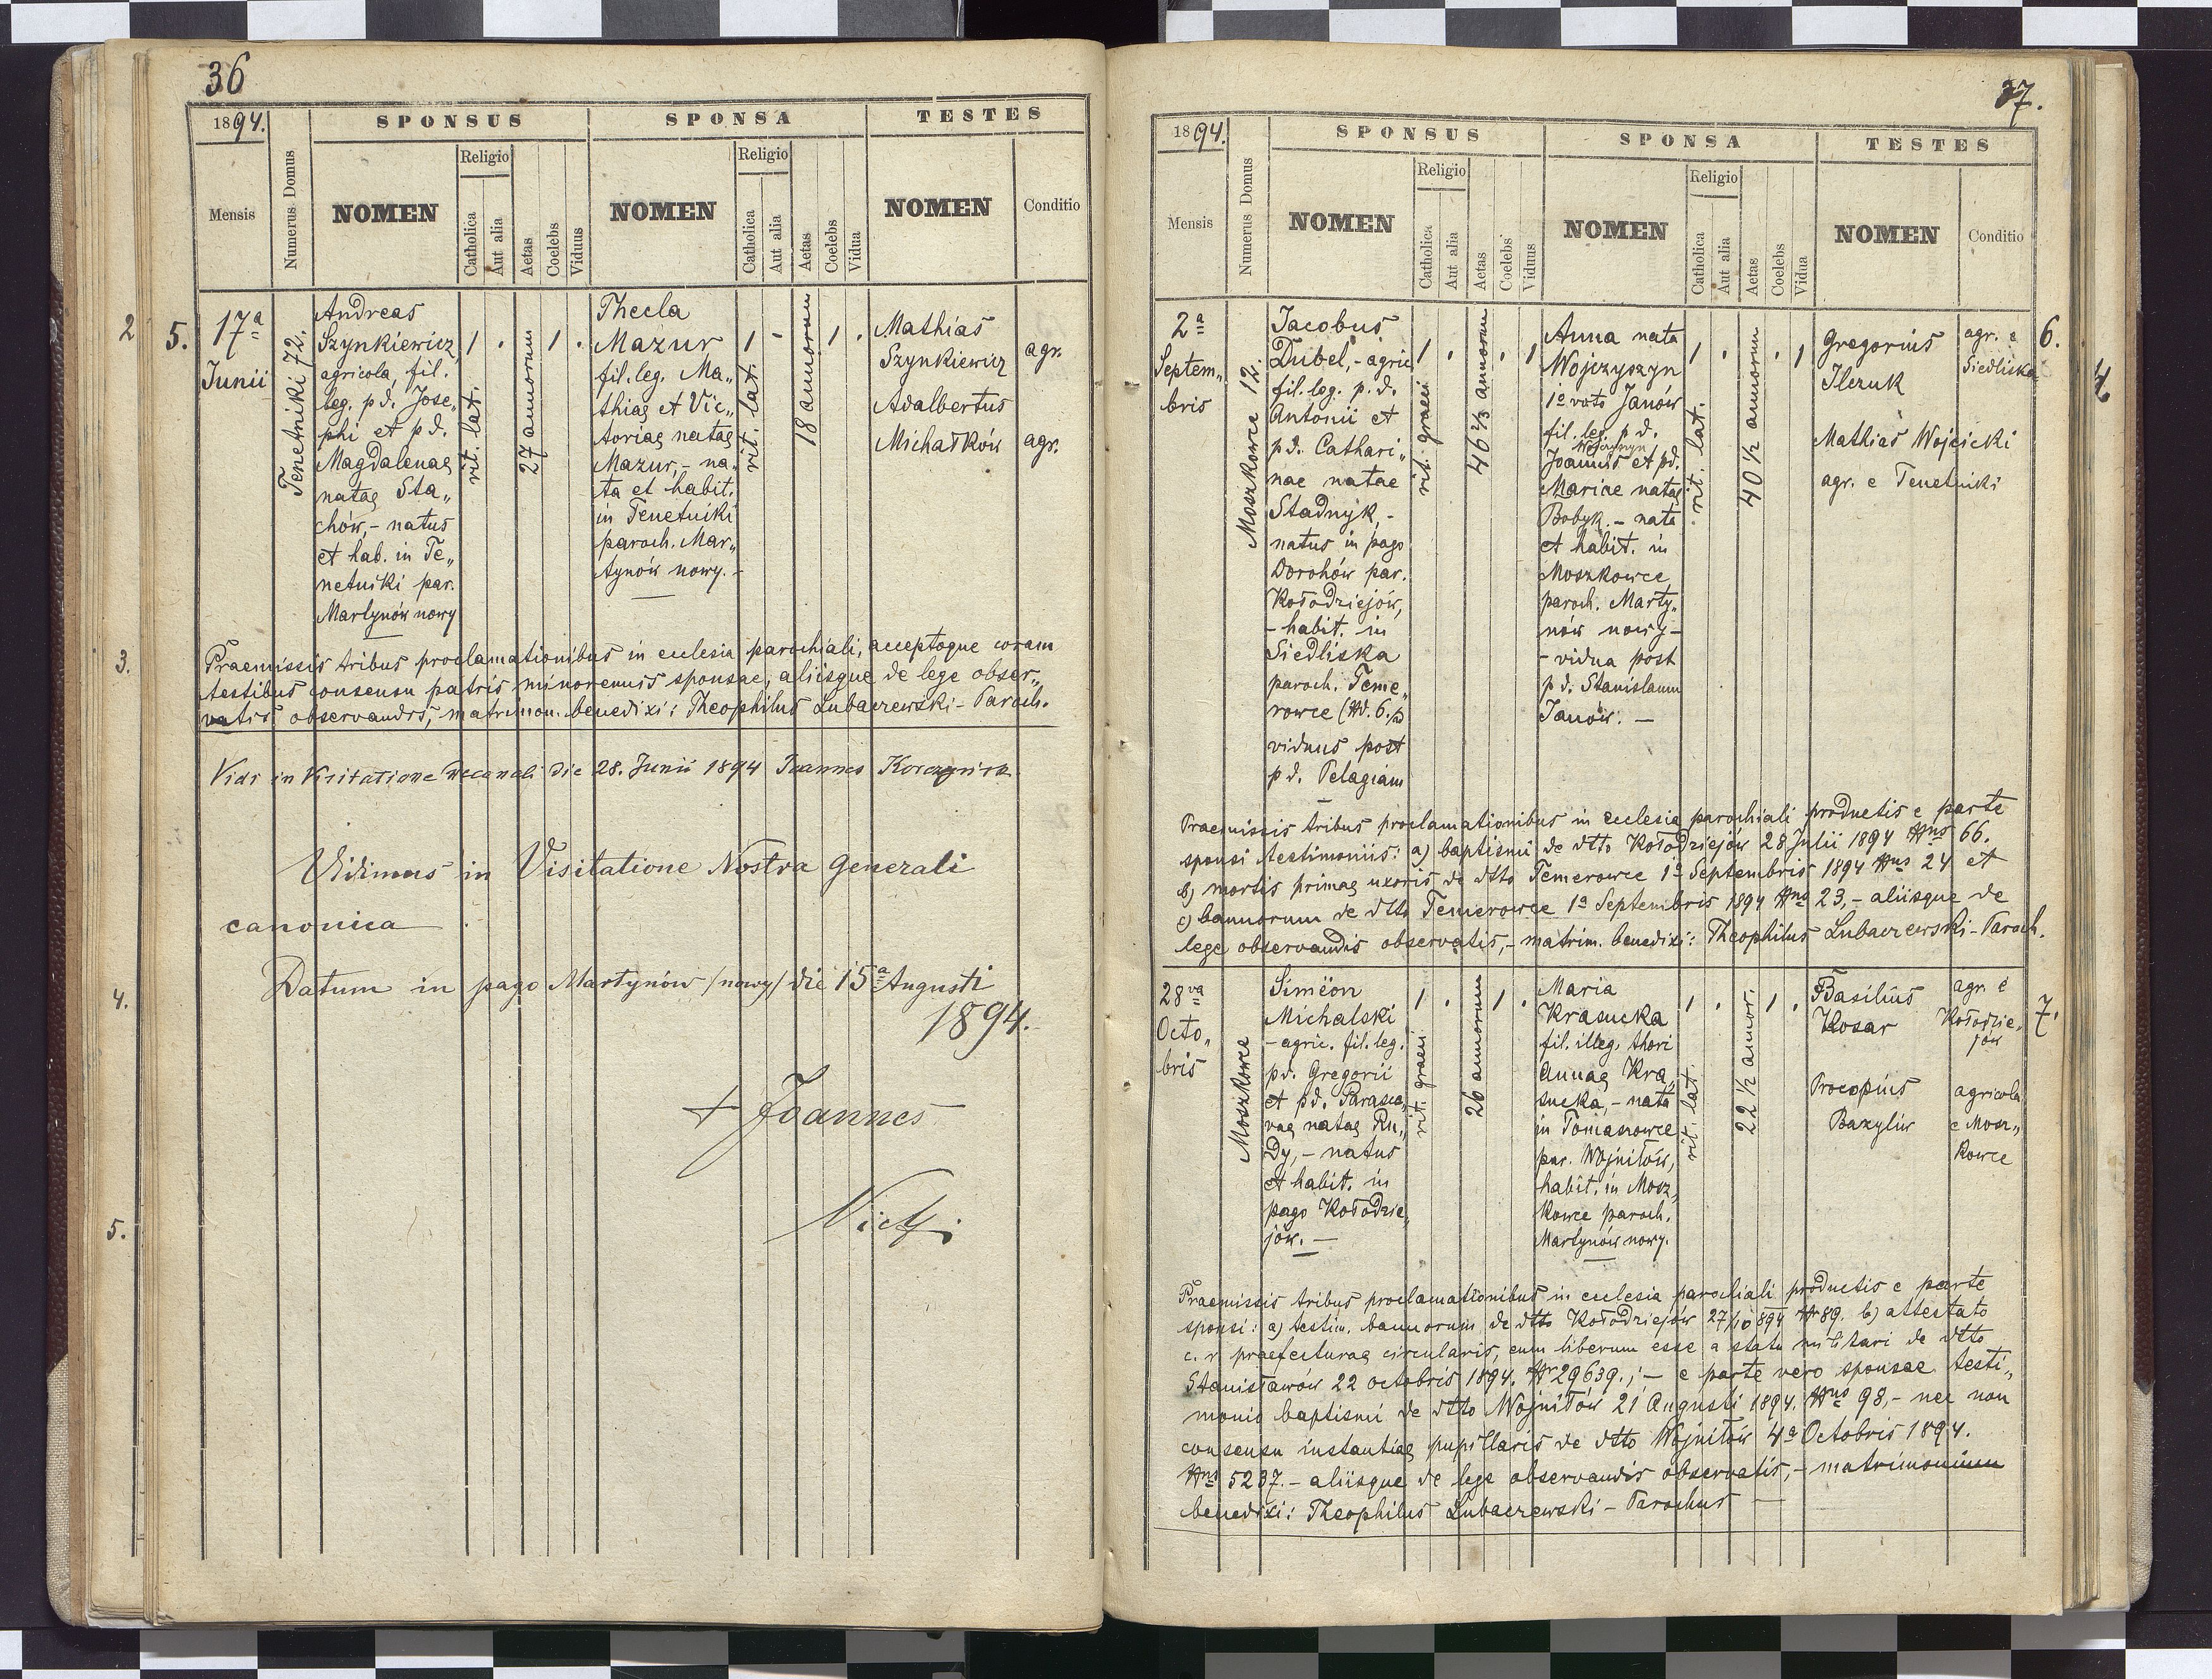 36
1894.
SPONSUS
SPONSA
TESTES
Mensis
Numerus Domus
NOMEN
Religio
Catholica
Aut alia
Aetas
Coelebs
Viduus
NOMEN
Religio
Catholica
Aut alia
Aetas
Coelebs
Vidua
NOMEN
Conditio
2
3.
4.
5.
5.
17a
Junii
Tenetniki 72.
Andreas
Szynkiewicz
agricola, fil.
leg. pd. Jose„
phi et pd.
Magdalenae
natae Sta„
chów,- natus
et hab. in Te„
netniki par.
Martynów nowy
1 .
rit. lat.
27 annorum
1 .
Thecla
Mazur
fil. leg. Ma„
thiae et Vic„
toriae natae
Mazur - na„
ta et habit.
in Tenetniki
paroch. Mar„
tynów nowy. -
1 .
rit. lat.
18 annorum
1 .
Mathias
Szynkiewicz
agr.
Adalbertus
Michałków
agr.
Praemissis tribus proclamationibus in ecclesia parochiali, acceptoque coram
testibus consensu patris minorennis sponsae, aliisque de lege obser„
vatis observandis, matrimon. benedixi: Theophilus Lubaczewski - Paroch.
Vidi in Visitatione Decanali die 28. Junii 1894 Joannes
Vidimus in Visitatione Nostra Generali
canonica
Datum in pago Martynów /nowy/ die 15a Augusti
1894.
+ Joannes
37.
1894.
SPONSUS
SPONSA
TESTES
Mensis
Numerus Domus
NOMEN
Religio
Catholica
Aut alia
Aetas
Coelebs
Viduus
NOMEN
Religio
Catholica
Aut alia
Aetas
Coelebs
Vidua
NOMEN
Conditio
2a
Septem„
bris
Moszkowce 12.
Jacobus
Dubel,- agric
fil. leg. p. d.
Antonii et
pd. Cathari„
nae natae
Stadnyk,-
natus in pago
Dorohów par.
Kołodziejów,
- habit. in
Siedliska
paroch. Teme„
rowce (Nd. 6.)
viduus post
pd. Pelagiam
1 .
rit. graeci
46 2/3 annorum
. 1
Anna nata
Wojczyszyn
1o voto Janów
fil. leg. p d.
Wojczyszyn
Joannis et pd.
Mariae natae
Bobyk. - nata
et habit. in
Moszkowce
paroch. Marty„
nów nowy -
- vidua post
p d. Stanislaum
Janów. -
1 .
rit. lat.
40 1/2 annorum
. 1
Gregorius
Ilczuk
agr. e
Siedliska
6.
Mathias Wojcicki
agr. e Tenetniki
Praemissis tribus proclamationibus in ecclesia parochiali productis e parte
sponsi testimoniis: a) baptismi de dtto Kołodziejów 28 Julii 1894 Nus 66.
b) mortis primae uxoris de dtto Temerowce 1a Septembris 1894 Nus 24 et
c) bannorum de dtto Temerowce 1a Septembris 1894 Nus 23,- aliisque de
lege observandis observatis,- matrim. benedixi: Theophilus Lubaczewski - Paroch.
28va
Octo„
bris
Moszkowce
Simeon
Michalski
- agric. fil. leg.
pd. Gregorii
et pd. Parasce„
vae natae Ru„
dy,- natus
et habit. in
pago Kołodzie„
jów. -
1 .
rit. graeci
26 annorum
1 .
Maria
Krasucka
fil. illeg. thori
Annae Kra„
sucka,- nata
in Tomaszowce
par. Wojniłów,
habit. in Mosz„
kowce paroch.
Martynów nowy.
1 .
rit. lat.
22 1/2 annor.
1 .
Basilius
Kosar
agr. e
Kołodzie„
jów
7.
Procopius
Bazyliw
agricola
e Mosz„
kowce
Praemissis tribus proclamationibus in ecclesia parochiali productis e parte
sponsi: a) testim. bannorum de dtto Kołodziejów 27/10 894 N 89. b) attestato
c. r. praefecturae circularis, eum liberum esse a statu militari de dtto
Stanisławów 22 Octobris 1894. N 29639.; - e parte vero sponsae testi„
monio baptismi de dtto Wojniłów 21 Augusti 1894. Nus 98,- nec non
consensu instantiae pupillaris de dtto Wojniłów 4a Octobris 1894.
Nus 5237. - aliisque de lege observandis observatis,- matrimonium
benedixi: Theophilus Lubaczewski - Parochus